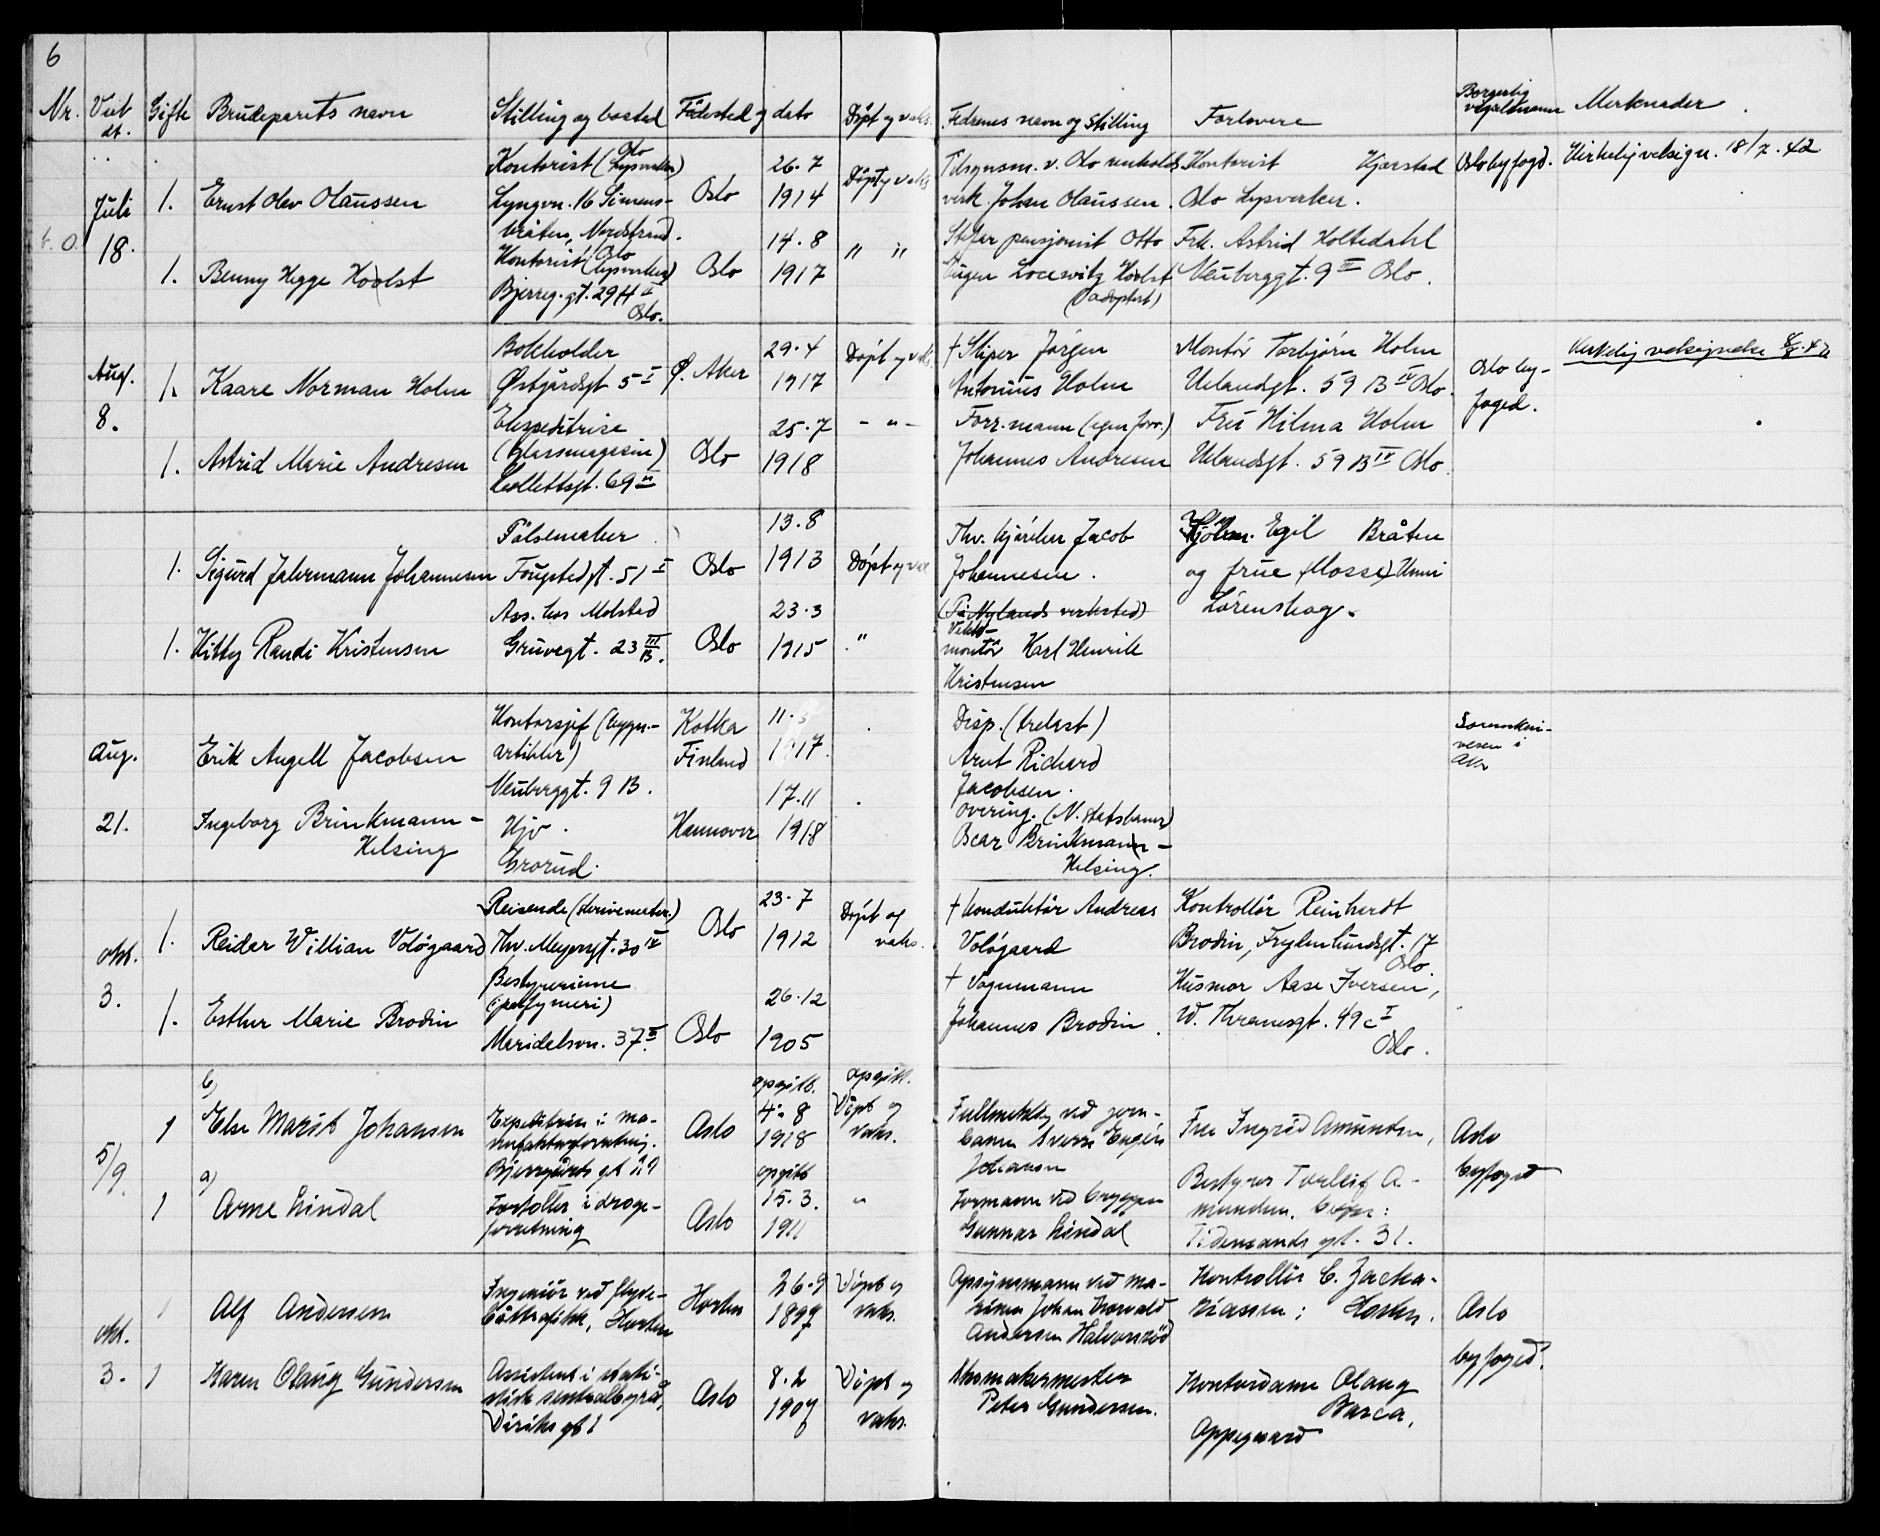 6
Nr. Viet dt. Gifte Brudeparets navn Stilling og bosted Fødested og dato Døpt og vaks. Fedrenes navn og stilling Forlovere Borgerlig Merknader
Juli 18.
1. Ernst Olav Olaussen
Kontorist (Oslo Lysverker)
Lyngvn. 16 Simens-
bråten, Nordstrand.
Oslo
26.7
1914
Døpt og vaks
Tilsynsm. v. Oslo renholds
verk. Johan Olaussen.
Kontorist Hjarstad
Oslo Lysverker.
Oslo byfogd.
Kirkelig velsign. 18/7.42
1. Benny Hegge Holst
Kontorist (Oslo Lysverker)
Bjerreg. gt. 29 H IV
Oslo.
Oslo
14.8
1917
" "
pensjonist Otto
Eugen Holst
(adoptert)
Frk. Astrid Holtedahl
Neuberggt. 9 III Oslo.
Aug.
8.
1. Kaare Norman Holm
Bokholder
Østgårdsgt 5 I
Ø. Aker
29.4
1917
Døpt og vaks.
† Skiper Jørgen
Antonius Holm
Montør Torbjørn Holm
Uelandsgt. 59 B IV Oslo.
Oslo by-
foged.
Kirkelig velsignelse 8/8.42
1. Astrid Marie Andresen
Ekspeditrise
(Glassmagasin)
Collettsgt. 69 III
Oslo
25.7
1918
- " -
Forr.mann (egen forr.)
Johannes Andresen
Fru Hilma Holm
Uelandsgt. 59 B IV Oslo.
1. Sigurd Jahrmann Johannesen
Pølsemaker
Fougstedgt. 51 I
Oslo
13.8
1913
Døpt og vaks
Thv. kjører Jacob
Johannesen.
Egil Bråten
og frue (Mosse) Unni
Lørenskog.
1. Kitty Randi Kristensen
Ass. hos Molstad
Grüvegt. 23 III B.
Oslo
23.3
1915
"
(På Nylands verksted)
montør Karl Henrik
Kristensen
Aug.
21.
Erik Angell Jacobsen
Kontorsjef (bygn.-
artikler)
Neuberggt. 9 B.
Kotka
Finland
1917.
Disp. (trelast)
Arnt Richard
Jacobsen.
Sorenskri-
veren i
Aker
Ingeborg Brinkmann -
Helsing
Hjv.
Grorud.
Hannover
17.11
1918
overing. (N. Statsbaner)
Oscar Brinkmann -
Helsing.
okt.
3.
1. Reidar Willian Vologaard
Reisende (skrivemater.)
Thv. Meyersgt. 30 IV
Oslo
23.7
1912
Døpt og
vaks.
† Konduktør Andreas
Vologaard
Kontrollør Reinhardt
Brodin, Frydenlundsgt. 17
Oslo.
1. Esther Marie Brodin
Bestyrerinne
(parfymeri)
Maridalsvn. 37 II.
Oslo
26.12
1905
† Vognmann
Johannes Brodin.
Husmor Aase Iversen,
W. Thranesgt. 49 c I
Oslo.
5/9.
b)
1 Else Marit Johansen
Expeditrise i ma-
nufakturforretning.
Bjerregårds gt
Oslo
opgitt.
4.8
1918
opgitt.
Døpt og
vaks.
Fullmektig ved jern-
banen Sverre Eugén
Johansen
Fru Ingrid Amundsen,
Oslo
byfoged
a)
1 Arne Lindal
Forvalter i droge-
forretning
Oslo
opgitt
15.3.
1911
"
Formann ved bryggen
Gunnar Lindal
Bestyrer Torleif A-
mundsen. begge:
Tidemands gt. 31.
okt.
3.
1 Alf Andersen
Ingeniør ved flyve-
båtfabrikk, Horten
Horten
26.9
1897
Døpt og
vaks.
Opsynsmann ved ma-
rinen Johan Torvald
Andersen Halvorsrød
Kontrollør C. Zacka-
riassen; Horten.
Oslo
byfoged.
1 Karen Olaug Gundersen
Assistent i stati-
stisk sentralbyrå,
Diriks gt 1
Oslo
8.2
1907
Døpt og
vaks.
Skomakermester
Peter Gundersen.
Kontordame Olaug
Oppegaard